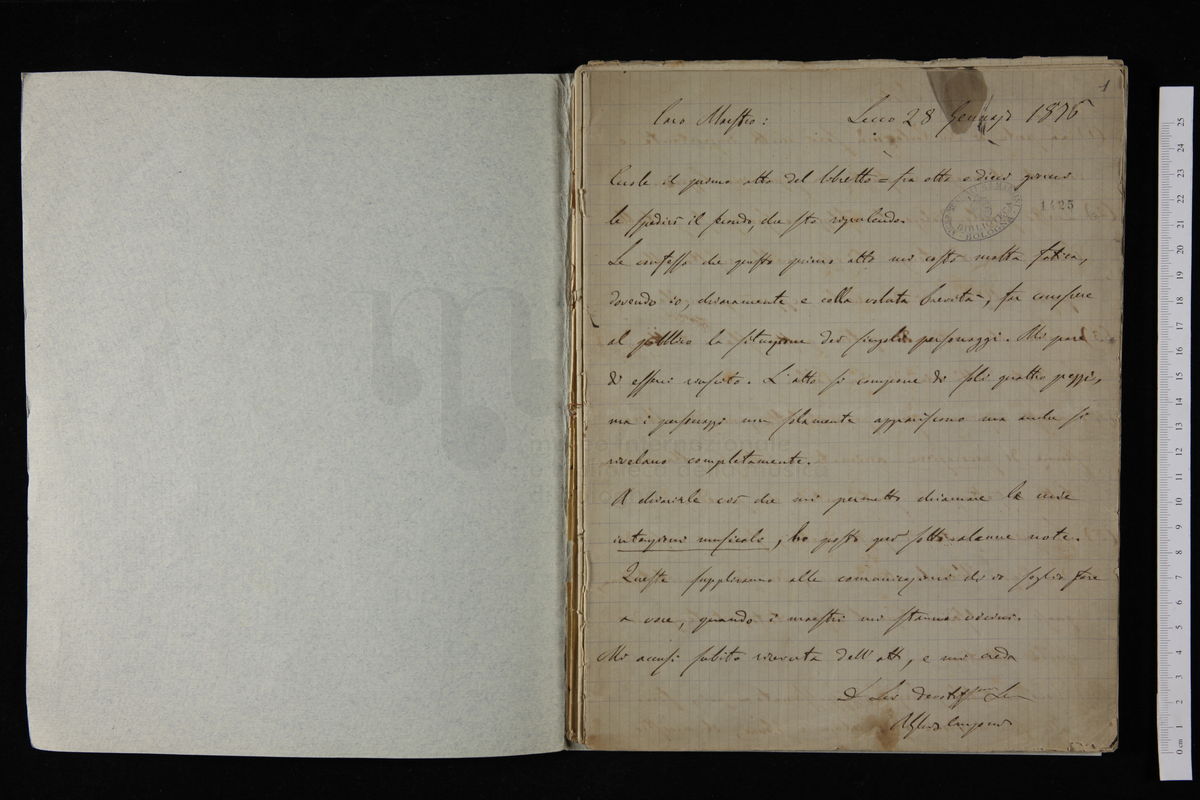 1
Caro Maestro: Lecco 28 Gennajo 1876
Eccole il primo atto del libretto = fra otto o dieci giorni
le spedirò il secondo, che sto ripulendo.
1425
BIBLIOTECA
BOLOGNA
Le confesso che questo primo atto mi costò molta fatica,
dovendo io, chiaramente e colla voluta brevità, far conoscere
al pubblico la situazione dei singoli personaggi. Mi pare
di esservi riuscito. L'atto si compone di soli quattro pezzi,
ma i personaggi non solamente appariscono ma anche si
rivelano completamente.
A chiarirle ciò che mi permetto chiamare le mie
intenzioni musicali, ho posto qui sotto alcune note.
Queste suppliranno alle comunicazioni che io soglio fare
a voce, quando i maestri mi stanno vicini.
Mi accusi subito ricevuta dell'atto, e mi creda
Di Lei